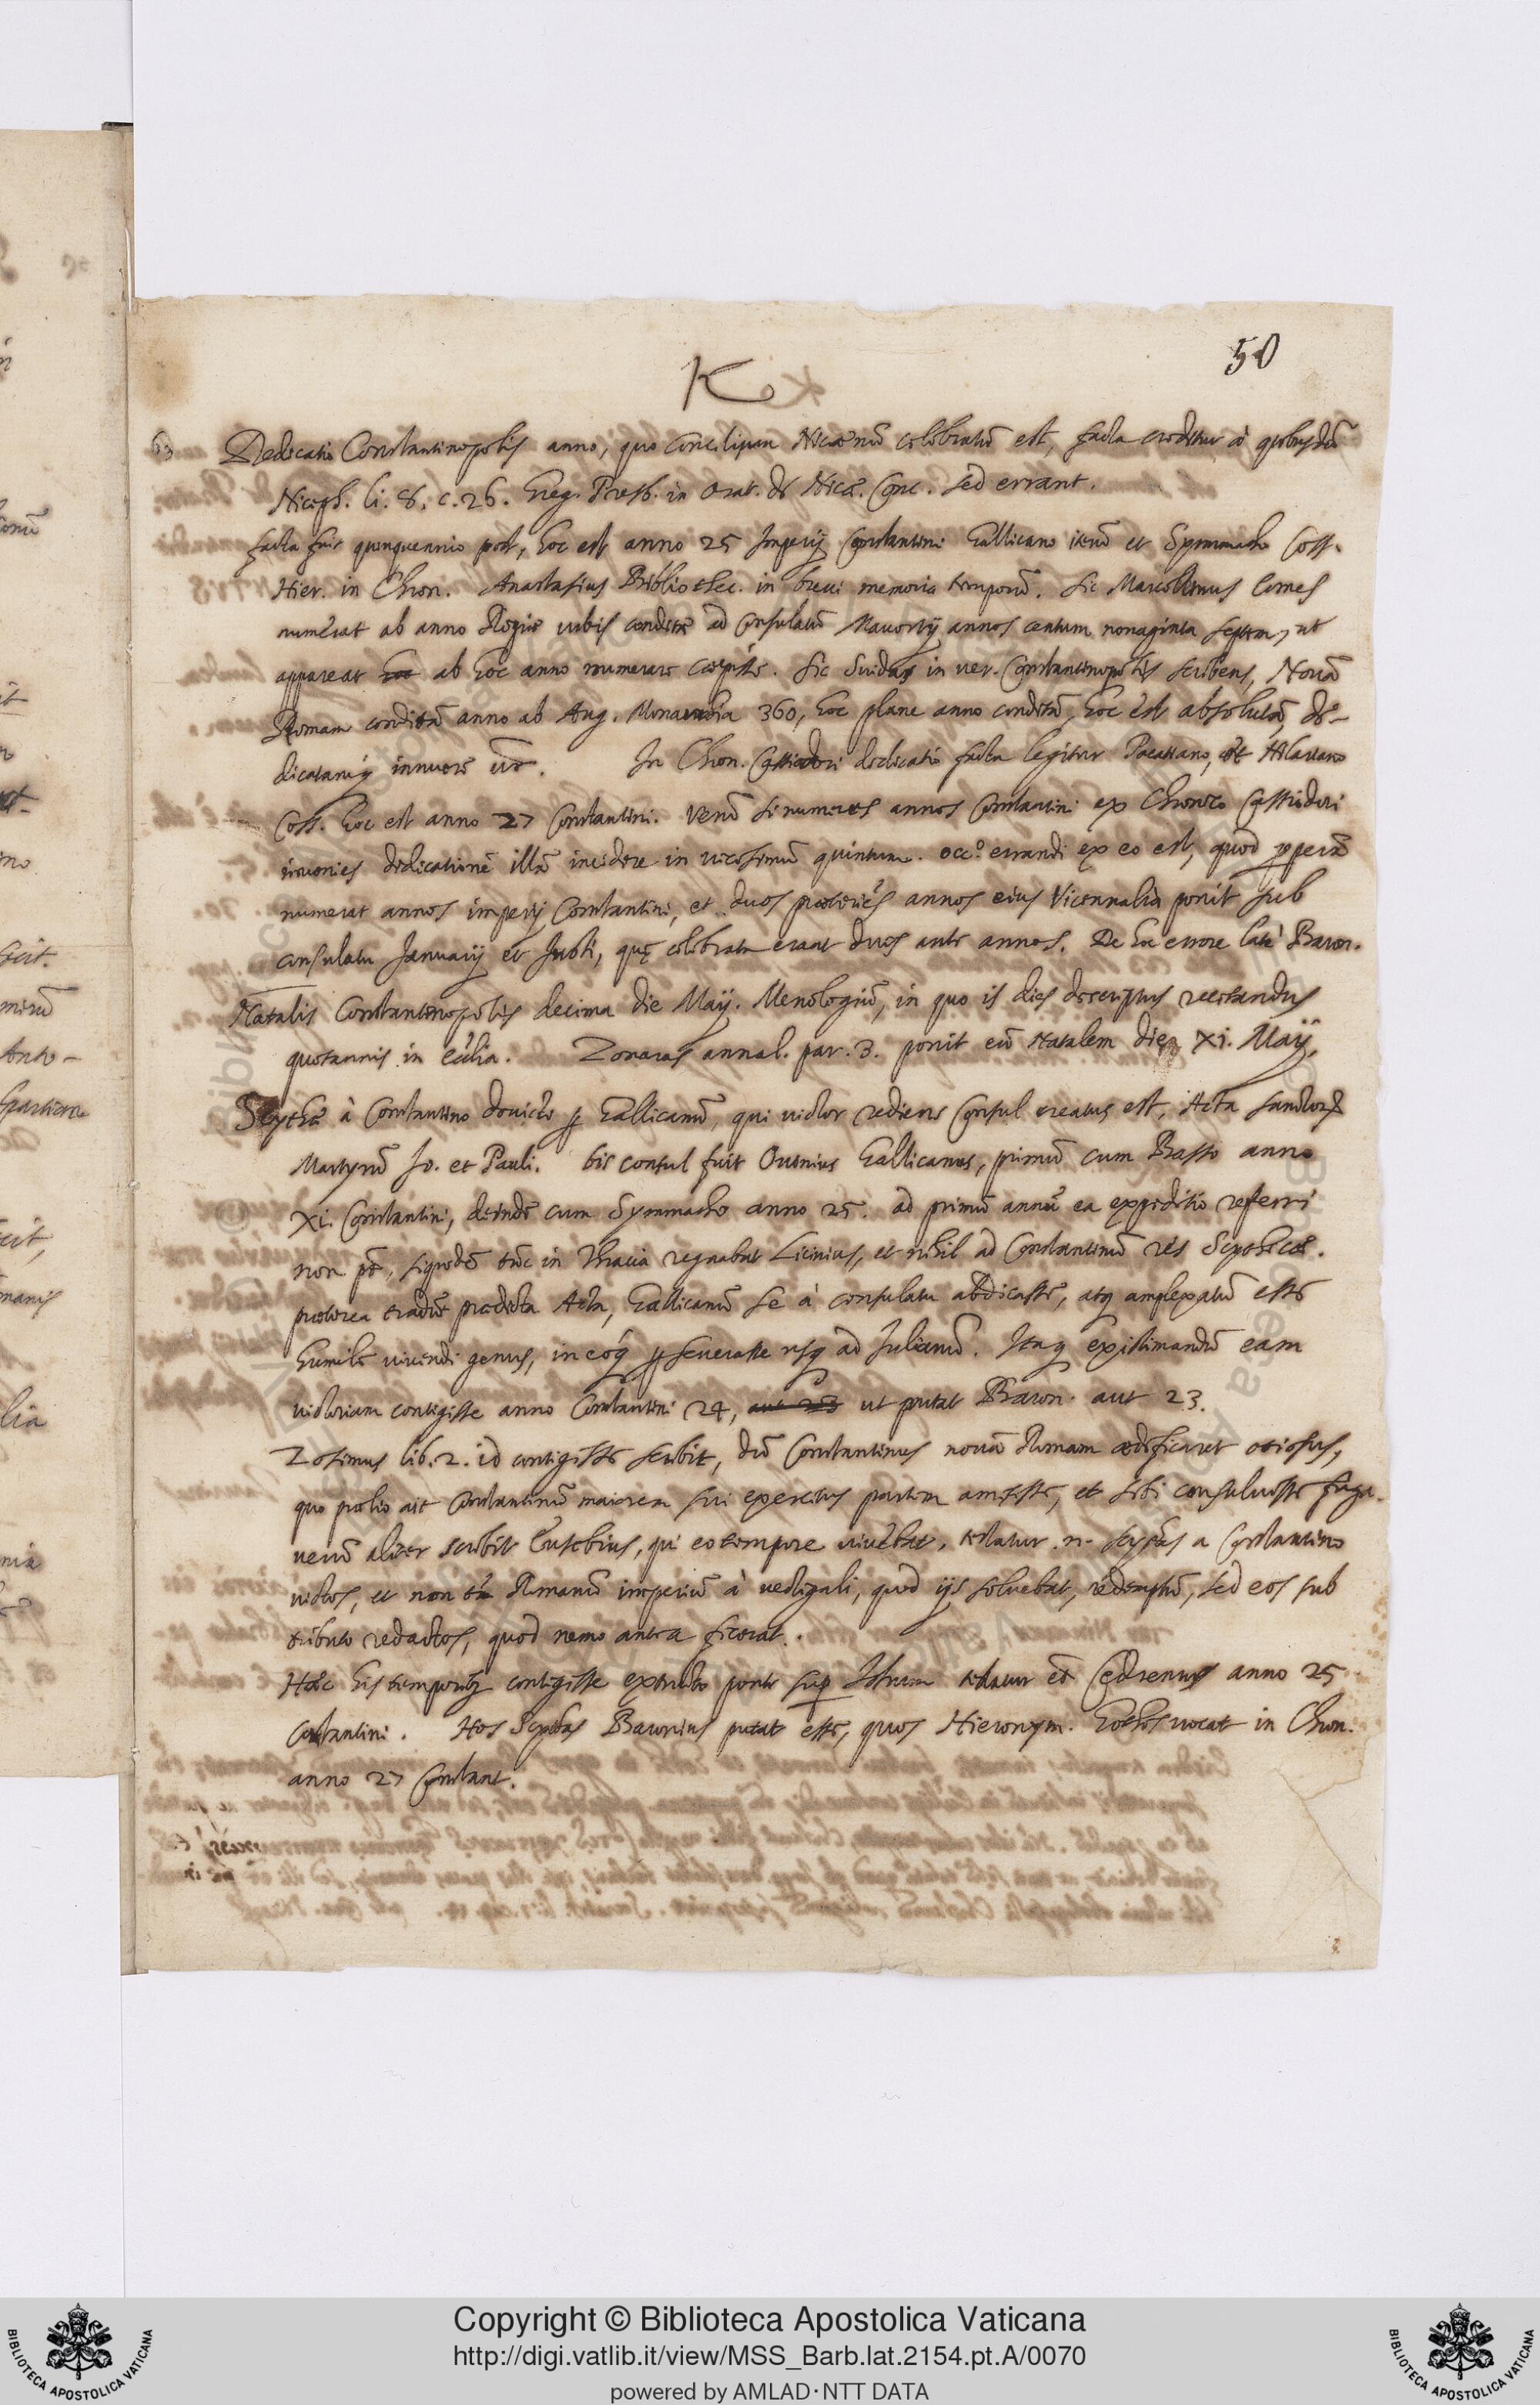 50
K
63 Dedicatio Constantinopolis anno, quo Concilium Nicænū celebratū est, facta creditur à quibusdā
Niceph. li. 8. c. 26. Greg. Presb. in orat. de Nicæ. Conc. sed errant.
facta fuit quinquennio post, hoc est anno 25 Imperij Constantini Gallicano iterū et Symmacho Coss.
Hier. in Chron. Anastasius Bibliothec. in breui memoria temporū. sic Marcellinus Comes
numerat ab anno Regiæ urbis conditæ ad Consulatū Mauortij annos centum nonaginta septem, ut
appareat ab hoc anno numerare cœpisse. sic Suidas in uer. Constantinopolis scribens, Nouā
Romam conditā anno ab Aug. Monarchia 360, hoc plane anno conditā, hoc est absolutā, de-
dicatamq̃ innuere In Chron. Cassiodori dedicatio facta legitur Pacatiano, et Hilariano
Coss. hoc est anno 27 Constantini. Verū si numeres annos Constantini ex Chronico Cassiodori
inuenies dedicationē illā incidere in uicesimū quintum. occ.º errandi ex eo est, quod perperā
numerat annos imperij Constantini, et duos annos eius Vicennalia ponit sub
consulatu Januarij et Justi, quę celebrata erant duos ante annos. De hoc errore late Baron.
Natalis Constantinopolis decima die Maij. Menologiū, in quo is dies descriptus recitandus
quotannis in ecclīa. Zonaras annal. par. 3. ponit eū Natalem diē XI. Maij.
Scythæ à Constantino deuicti ꝑ Gallicanū, qui uictor rediens Consul creatus est, Acta sanctorꝝ
Martyrū Jo. et Pauli. bis consul fuit Ouinius Gallicanus, primū cum Basso anno
XI. Constantini, deinde cum Symmacho anno 25. ad primū annū ea expeditio referri
non pōt, siquidē tūc in Thracia regnabat Licinius, et nihil ad Constantinū res Scythicæ.
præterea tradūt prædicta Acta, Gallicanū se à consulatu abdicasse, atq̃ amplexatū esse
humile uiuendi genus, in eoq̃ ꝑseuerasse usq̃ ad Julianū. Itaq̃ existimandū eam
uictoriam contigisse anno Constantini 24, aut 23 ut putat Baron. aut 23.
Zosimus lib. 2. id contigisse scribit, dū Constantinus nouā Romam ædificaret otiosus,
quo prælio ait Constantinū maiorem sui exercitus partem amisisse, et sibi consuluisse fuga.
uerū aliter scribit Eusebius, qui eo tempore uiuebat, testatur .n. scythas a Constantino
uictos, et non Romanū imperiū à uectigali, quod ijs soluebat, redemptū, sed eos sub
tributo redactos, quod nemo antea fecerat.
Hæc his temporib. contigisse extructo ponte sup Istrum testatur et Cedrenus anno 25
Constantini. Hos Scythas Baronius putat esse, quos Hieronym. Gothos uocat in Chron.
anno 27 Constant.
Copyright © Biblioteca Apostolica Vaticana
http://digi.vatlib.it/view/MSS_Barb.lat.2154.pt.A/0070
powered by AMLAD·NTT DATA
BIBLIOTECA APOSTOLICA VATICANA
BIBLIOTECA APOSTOLICA VATICANA